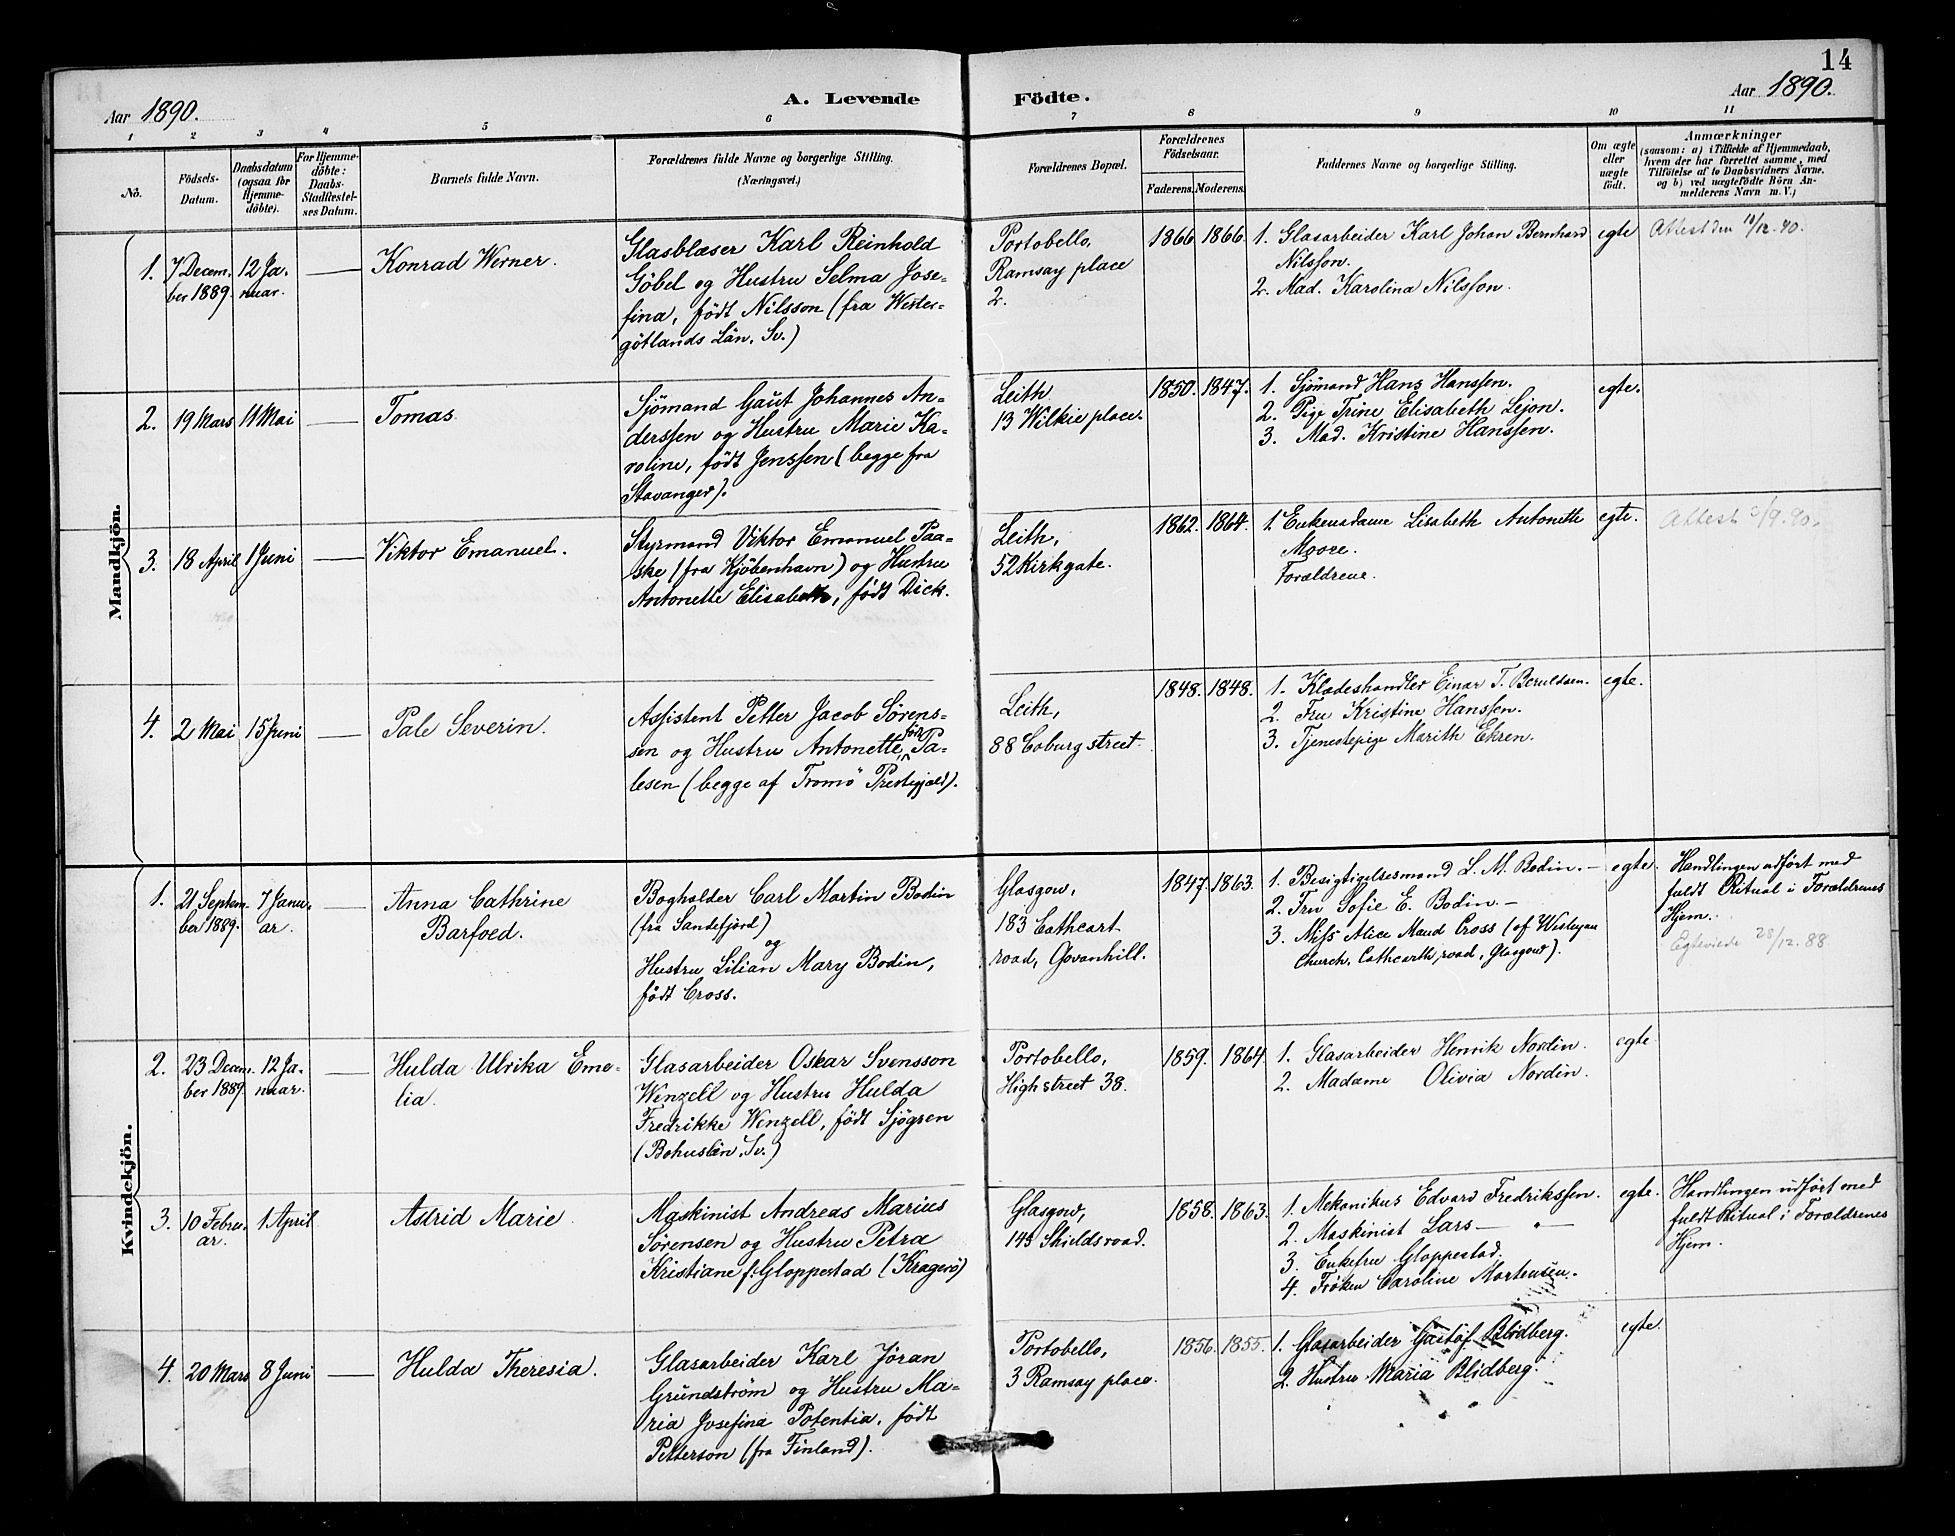 14
Aar 1890.
A. Levende Födte.
Aar 1890.
1 2 3 4 5 6 7 8 9 10 11
No.
Födsels-
Datum.
Daabsdatum
(ogsaa for
Hjemme-
döbte).
For Hjemme-
döbte:
Daabs-
Stadfæstel-
ses Datum.
Barnets fulde Navn.
Forældrenes fulde Navne og borgerlige Stilling.
(Næringsvei.)
Forældrenes Bopæl.
Forældrenes
Födselsaar.
Faderens. Moderens.
Faddernes Navne og borgerlige Stilling.
Om ægte
eller
uægte
födt.
Anmærkninger
(saasom: a) i Tilfælde af Hjemmedaab,
hvem der har forrettet samme, med
Tilföielse af to Daabsvidners Navne,
og b) ved uægtefödte Börn An-
melderens Navn m. V.)
Mandkjön.
1.
7 Decem-
ber 1889.
12 Ja-
nuar.
Konrad Werner.
Glasblæser Karl Reinhold
Göbel og Hustru Selma Jose-
fina, födt Nilsson (fra Wester-
götlands Län, Sv.)
Portobello,
Ramsay place
2.
1866 1866.
1. Glasarbeider Karl Johan Bernhard
Nilsson.
2. Mad. Karolina Nilsson.
egte
Attest den /12.90.
2.
19 Mars
11 Mai
Tomas
Sjömand Gaut Johannes An-
derssen og Hustru Marie Ka-
roline, födt Jenssen (begge fra
Stavanger).
Leith
13 Wilkie place.
1850. 1847.
1. Sjömand Hans Hanssen.
2. Pige Trine Elisabeth Lejon.
3. Mad. Kristine Hanssen.
egte.
3.
18 April
1 Juni
Viktor Emanuel.
Styrmand Viktor Emanuel Paa-
ske (fra Kjöbenhavn) og Hustru
Antonette Elisabeth, födt Dick.
Leith,
52 Kirkgate.
1862. 1864.
1. Enkemadame Lisabeth Antonette
Moore.
Forældrene.
egte.
Attest /9.90.
4.
2 Mai
15 Juni
Pale Severin.
Assistent Petter Jacob Sörens-
sen og Hustru Antonette, föd Pa-
lesen (begge af Tromö Præstegjæld).
Leith,
88 Coburg street.
1848. 1848.
1. Klædeshandler Einar T. Beruldsen.
2. Fru Kristine Hanssen.
3. Tjenestepige Marith Ekren.
egte.
Kvindekjön.
1.
21 Septem-
ber 1889.
7 Janu-
ar.
Anna Cathrine
Barfoed.
Bogholder Carl Martin Bodin
(fra Sandefjord)
og
Hustru Lilian Mary Bodin,
födt Cross.
Glasgow,
183 Cathcart
road, Govanhill.
1847. 1863.
1. Besigtigelsesmand L. M. Bodin. -
2. Fru Sofie E. Bodin. -
3. Miss Alice Maud Cross (of Wesleyan
Church, Cathcarth road, Glasgow).
egte.
Handlingen udfört med
fuldt Ritual i Forældrenes
Hjem.
Egteviede 28/12.88
2.
23 Decem-
ber 1889.
12 Ja-
nuar.
Hulda Ulrika Eme-
lia.
Glasarbeider Oskar Svensson
Wenzell og Hustru Hulda
Fredrikke Wenzell, födt Sjögren
(Bohuslän, Sv.)
Portobello,
High street 38.
1859. 1864.
1. Glasarbeider Henrik Nordin.
2. Madame Olivia Nordin.
egte
3.
10 Febru-
ar.
1 April
Astrid Marie
Maskinist Andreas Marius
Sörensen og Hustru Petra
Kristiane f. Gloppestad (Kragerö)
Glasgow,
145 Shieldsroad.
1858. 1863.
1. Mekanikus Edvard Fredrikssen.
2. Maskinist Lars — " —
3. Enkefru Gloppestad.
4. Fröken Caroline Mortensen.
egte.
Handlingen udfört med
fuldt Ritual i Forældrenes
Hjem.
4.
20 Mars
8 Juni
Hulda Theresia.
Glasarbeider Karl Jöran
Grundström og Hustru Ma-
ria Josefina Potentia, födt
Petterson (fra Finland).
Portobello,
3 Ramsay place.
1856. 1855.
1. Glasarbeider Gustof Blidberg.
2. Hustru Maria Blidberg.
egte.